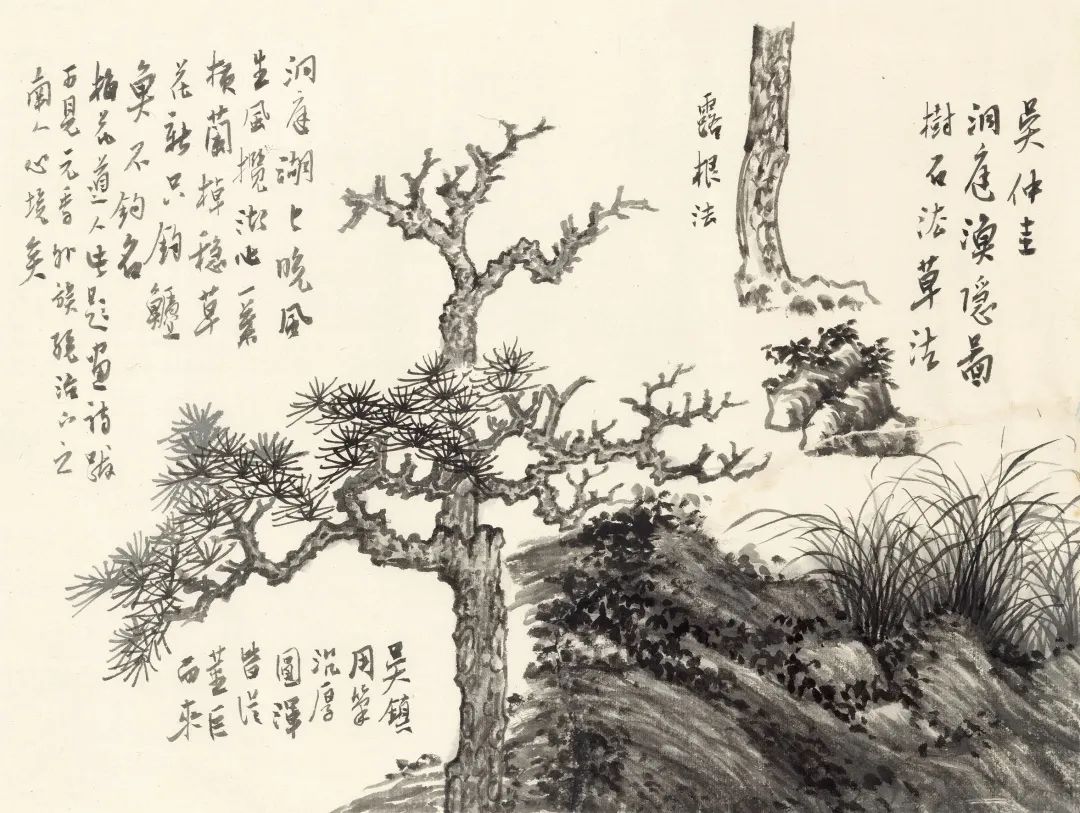 吳仲圭
洞庭漁隱圖
樹石法草法
露根法
洞庭湖上晚風
生風攬湖心一葉
橫蘭棹穩草
花新只釣鱸
魚不釣名
梅花道人此題畫詩跋
可見元季外族統治下之
南人心境矣
吳鎮
用筆
沉厚
圓渾
皆從
董巨
而來